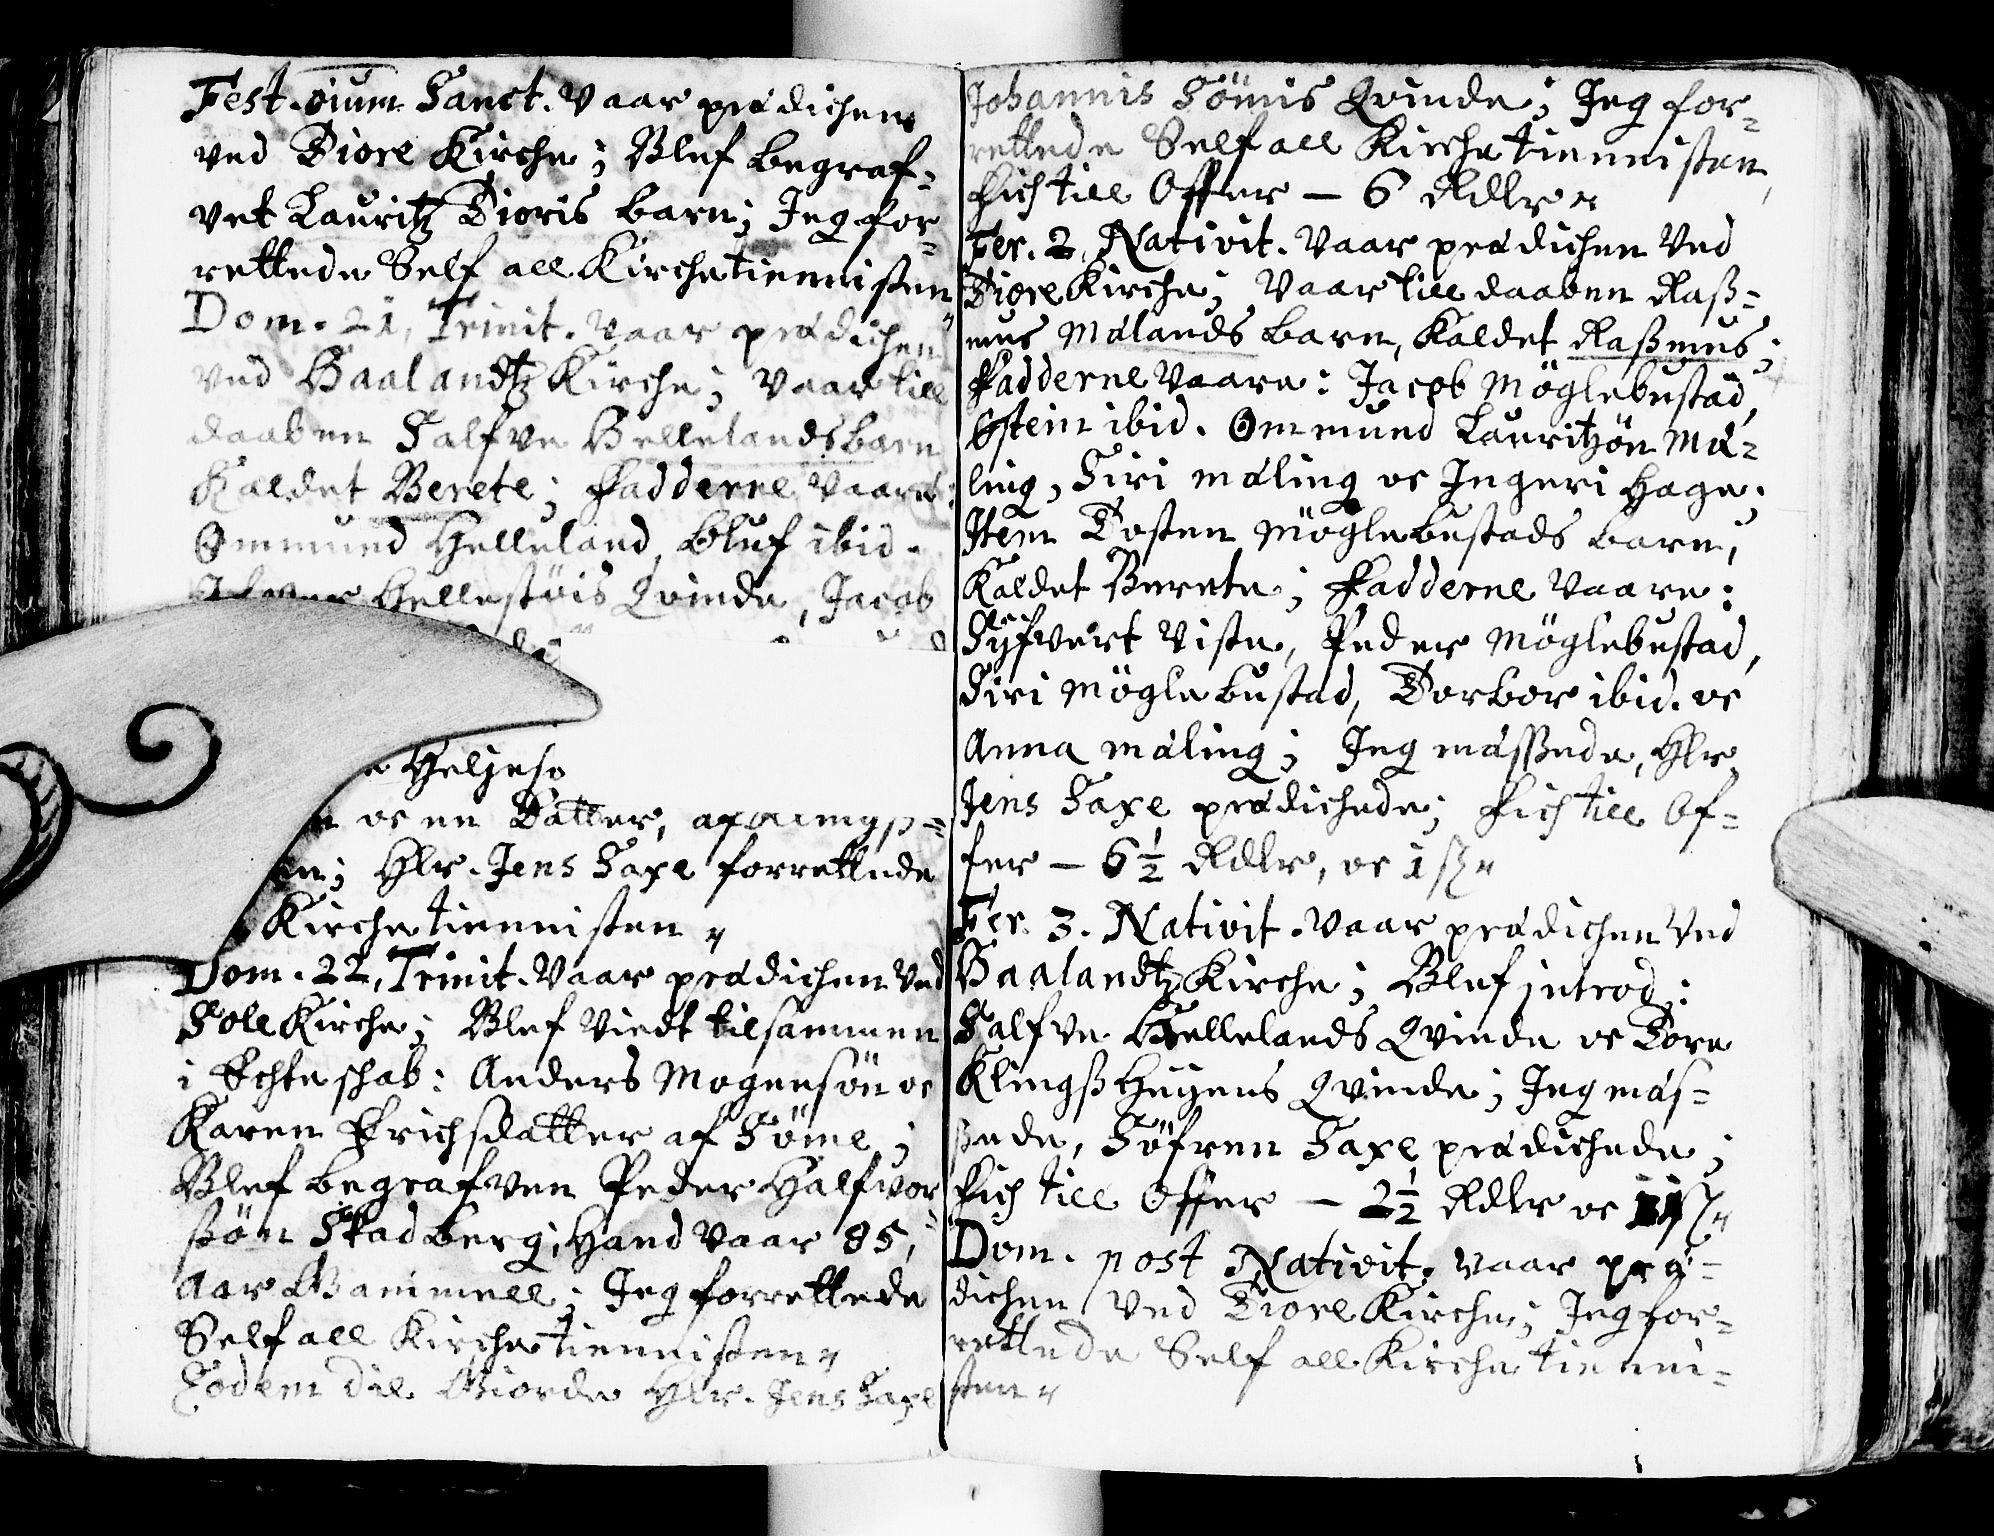 Fest. oium Sanct. Vaar prædichen
ved Tiore Kirche; Blef begraf-
vet Lauritz Tioris barn; Jeg for-
rettede Self all Kirchetiennisten
Dom. 21, Trinit. Vaar prædichen
ved Haalandtz Kirche; Vaar till
daaben Salfve Hellelands barn
Kaldet Berete; Fadderne vaare:
Ommund Helleland, Eluf ibid.
Hellestöis Qvinde, Jacob
Heljeso
oc en Datter,
Hlr. Jens Saxe forrettede
Kirchetiennisten
Dom. 22, Trinit. Vaar prædichen ved
Sole Kirche; Blef Viedt tilsammen
i Echteschab: Anders Mogensön oc
Karen Erichsdatter af Söme;
Blef begrafven Peder Halfvor
ssön Skadberg; Hand Vaar 85,
Aar Gammell; Jeg forrettede
Self all Kirchetiennisten
Eodem die Giorde Hlr. Jens Saxe
Johannis Sömis Qvinde; Jeg for-
rettede Self all Kirchetiennisten,
Fich till Offer – 6 Rdlr
Fer. 2, Nativit. Vaar prædichen Ved
Tiore Kirche; Vaar till daaben Rass-
mus Mælands barn, Kaldet Rassmus;
Fadderne Vaare: Jacob Möglebustad,
Östein ibid. Ommund Lauritzön Mæ-
ling, Siri Mæling oc Ingeri Hage;
Item Tosten Möglebustads barn,
Kaldet Berete; Fadderne Vaare:
Syfvert Viste, Peder Möglebustad,
Siri Möglebustad, Torbor ibid. oc
Anna Mæling; Jeg mæssede, Hlr
Jens Saxe prædichede; Fich till Of-
fer – 6½ Rdlr, oc 1 ß
Fer. 3. Nativit. Vaar prædichen Ved
Haalandtz Kirche; Blef introd:
Salfve Hellelands Qvinde oc Tore
Klingssheyens Qvinde; Jeg mæs-
sede, Söfren Saxe prædichede;
Fich till Offer – 2½ Rdlr oc ß
Dom. post Nativit. Vaar præ-
dichen Ved Tiore Kirche; Jeg for-
rettede Self all Kirche tienni-
sten